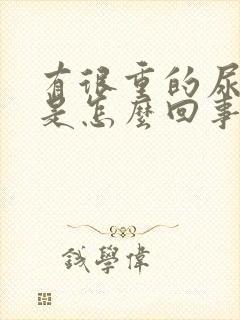 有很重的尿
是怎麼回事
鐵學偉